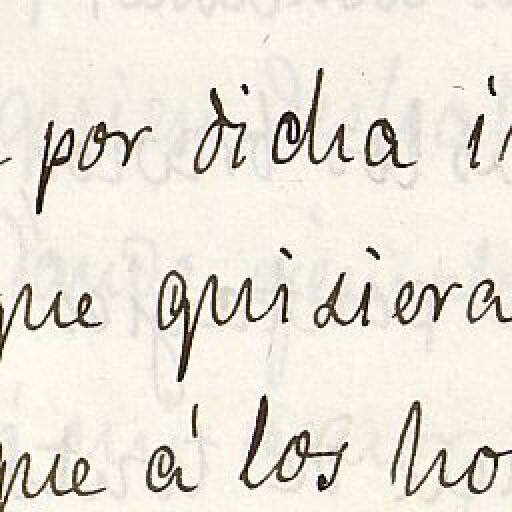 por dicha i
que quisiera
que á los ho